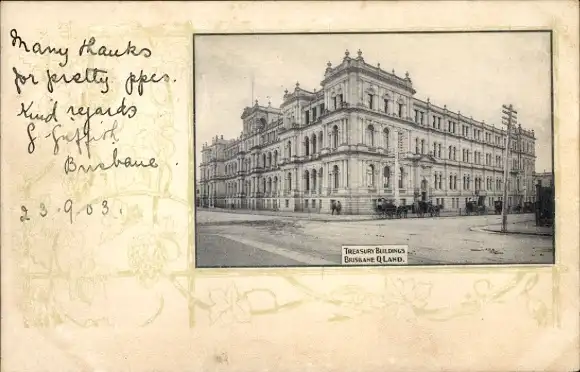 Many thanks
for pretty ppcs.
Kind regards
G Griffith
Brisbane
23.9.03.
TREASURY BUILDINGS
BRISBANE QLAND.